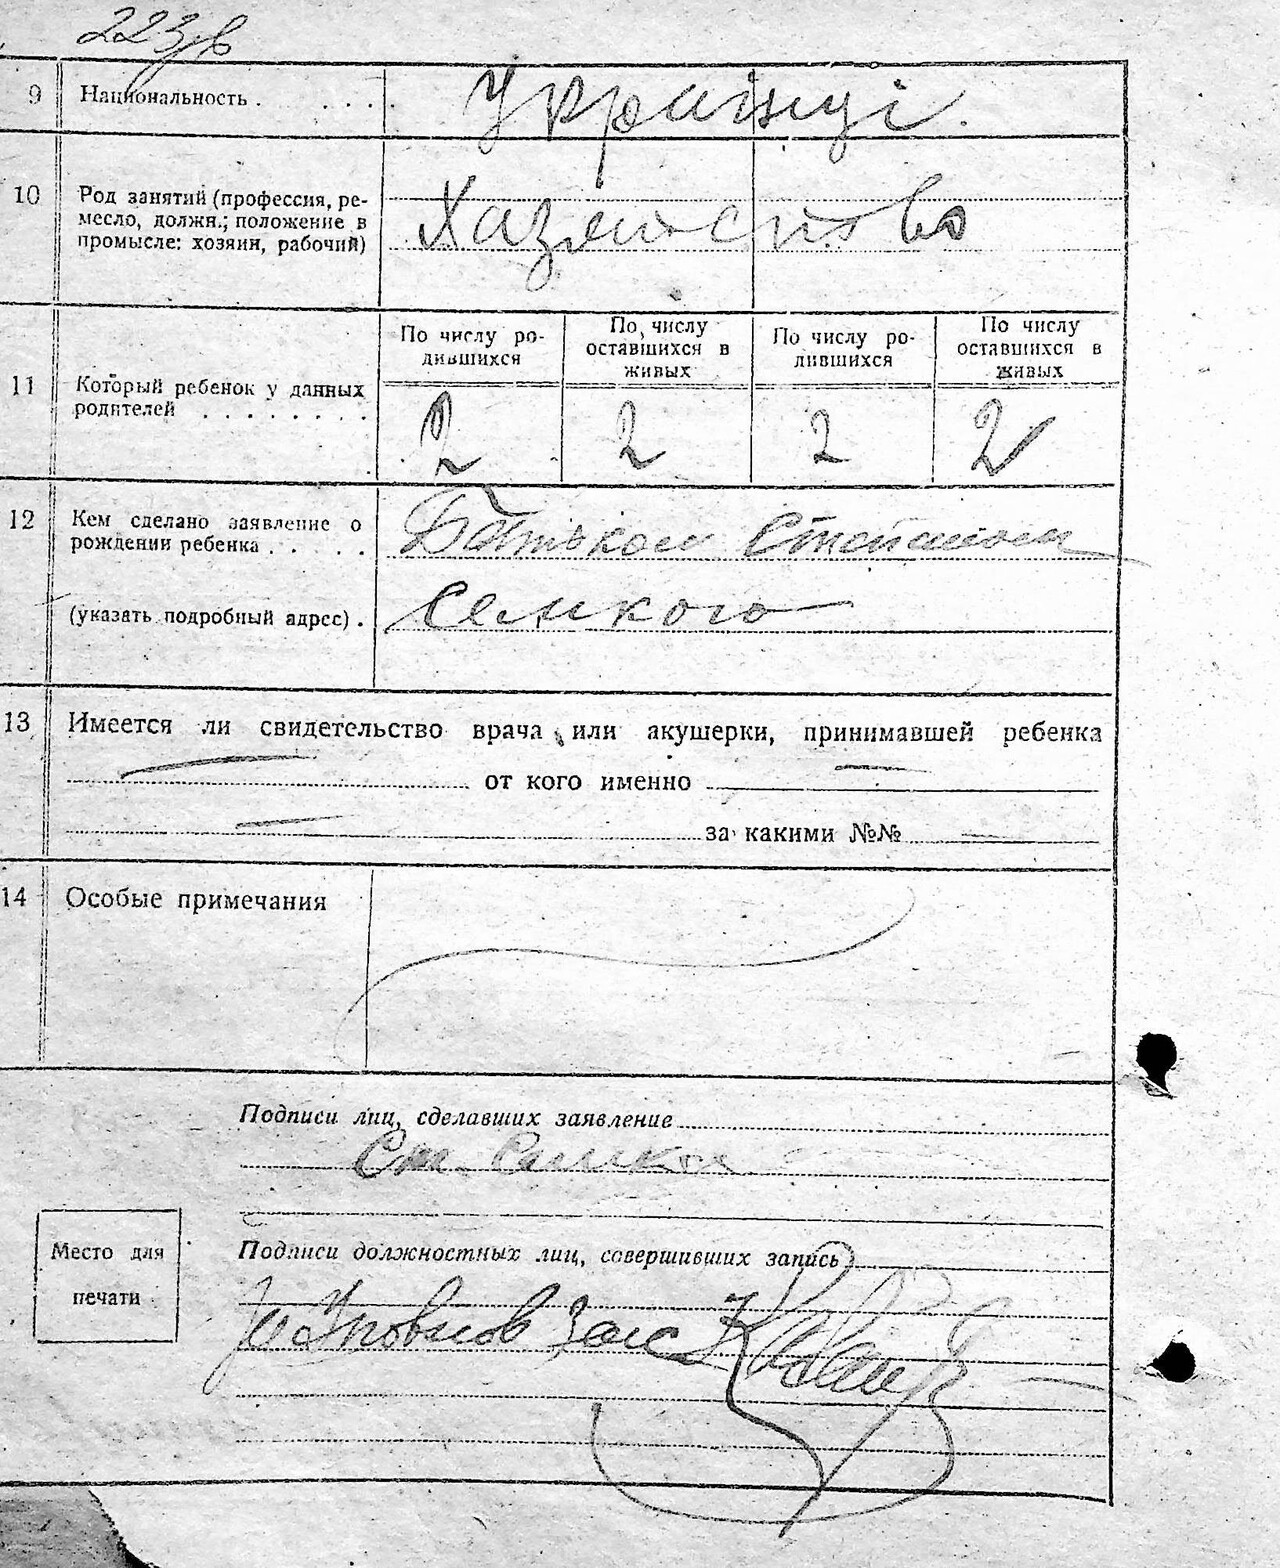 223зв
9 Национальность . . . . . Українці.
10 Род занятий (профессия, ре-
месло, должн.; положение в
промысле: хозяин, рабочий)
Хазяйство
По числу ро-
дившихся
По числу
оставшихся в
живых
По числу ро-
дившихся
По числу
оставшихся в
живых
11 Который ребенок у данных
родителей . . . . . . . .
2 2 2 2
12 Кем сделано заявление о
рождении ребенка . . . . .
Батьком Степаном
(указать подробный адрес) .
13 Имеется ли свидетельство врача или акушерки, принимавшей ребенка
от кого именно
за какими №№
14 Особые примечания
Подписи лиц, сделавших заявление
Ст.
Подписи должностных лиц, совершивших запись
Место для
печати